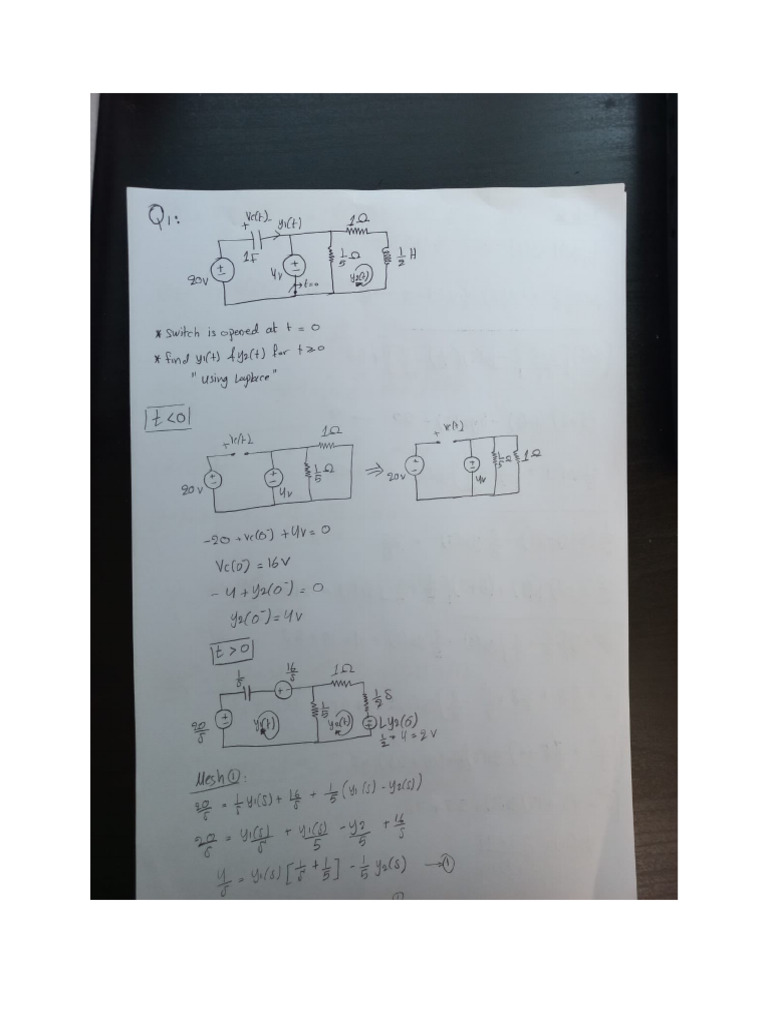 Q1:
+ Vc(t) - y1(t) 1Ω
1F 1/5 Ω 1/2 H
20V 4v t=0 y2(t)
* Switch is opened at t = 0
* find y1(t) & y2(t) for t≥0
"using Laplace"
t<0
+ Vc(t) 1Ω + Vc(t)
20V 4v 1/5 Ω ⇒ 20V 4v 1/5 Ω 1Ω
-20 + Vc(0⁻) + 4v = 0
Vc(0⁻) = 16V
- 4 + y2(0⁻) = 0
y2(0⁻) = 4v
t > 0
1/s 16/s 1Ω
20/s y1(t) 1/5 y2(t) 1/2 s
Ly2(0)
1/2 * 4 = 2V
Mesh ①:
20/s = 1/s y1(s) + 16/s + 1/5 (y1(s) - y2(s))
20/s = y1(s)/s + y1(s)/5 - y2/5 + 16/s
4/s = y1(s) [1/s + 1/5] - 1/5 y2(s) → ①